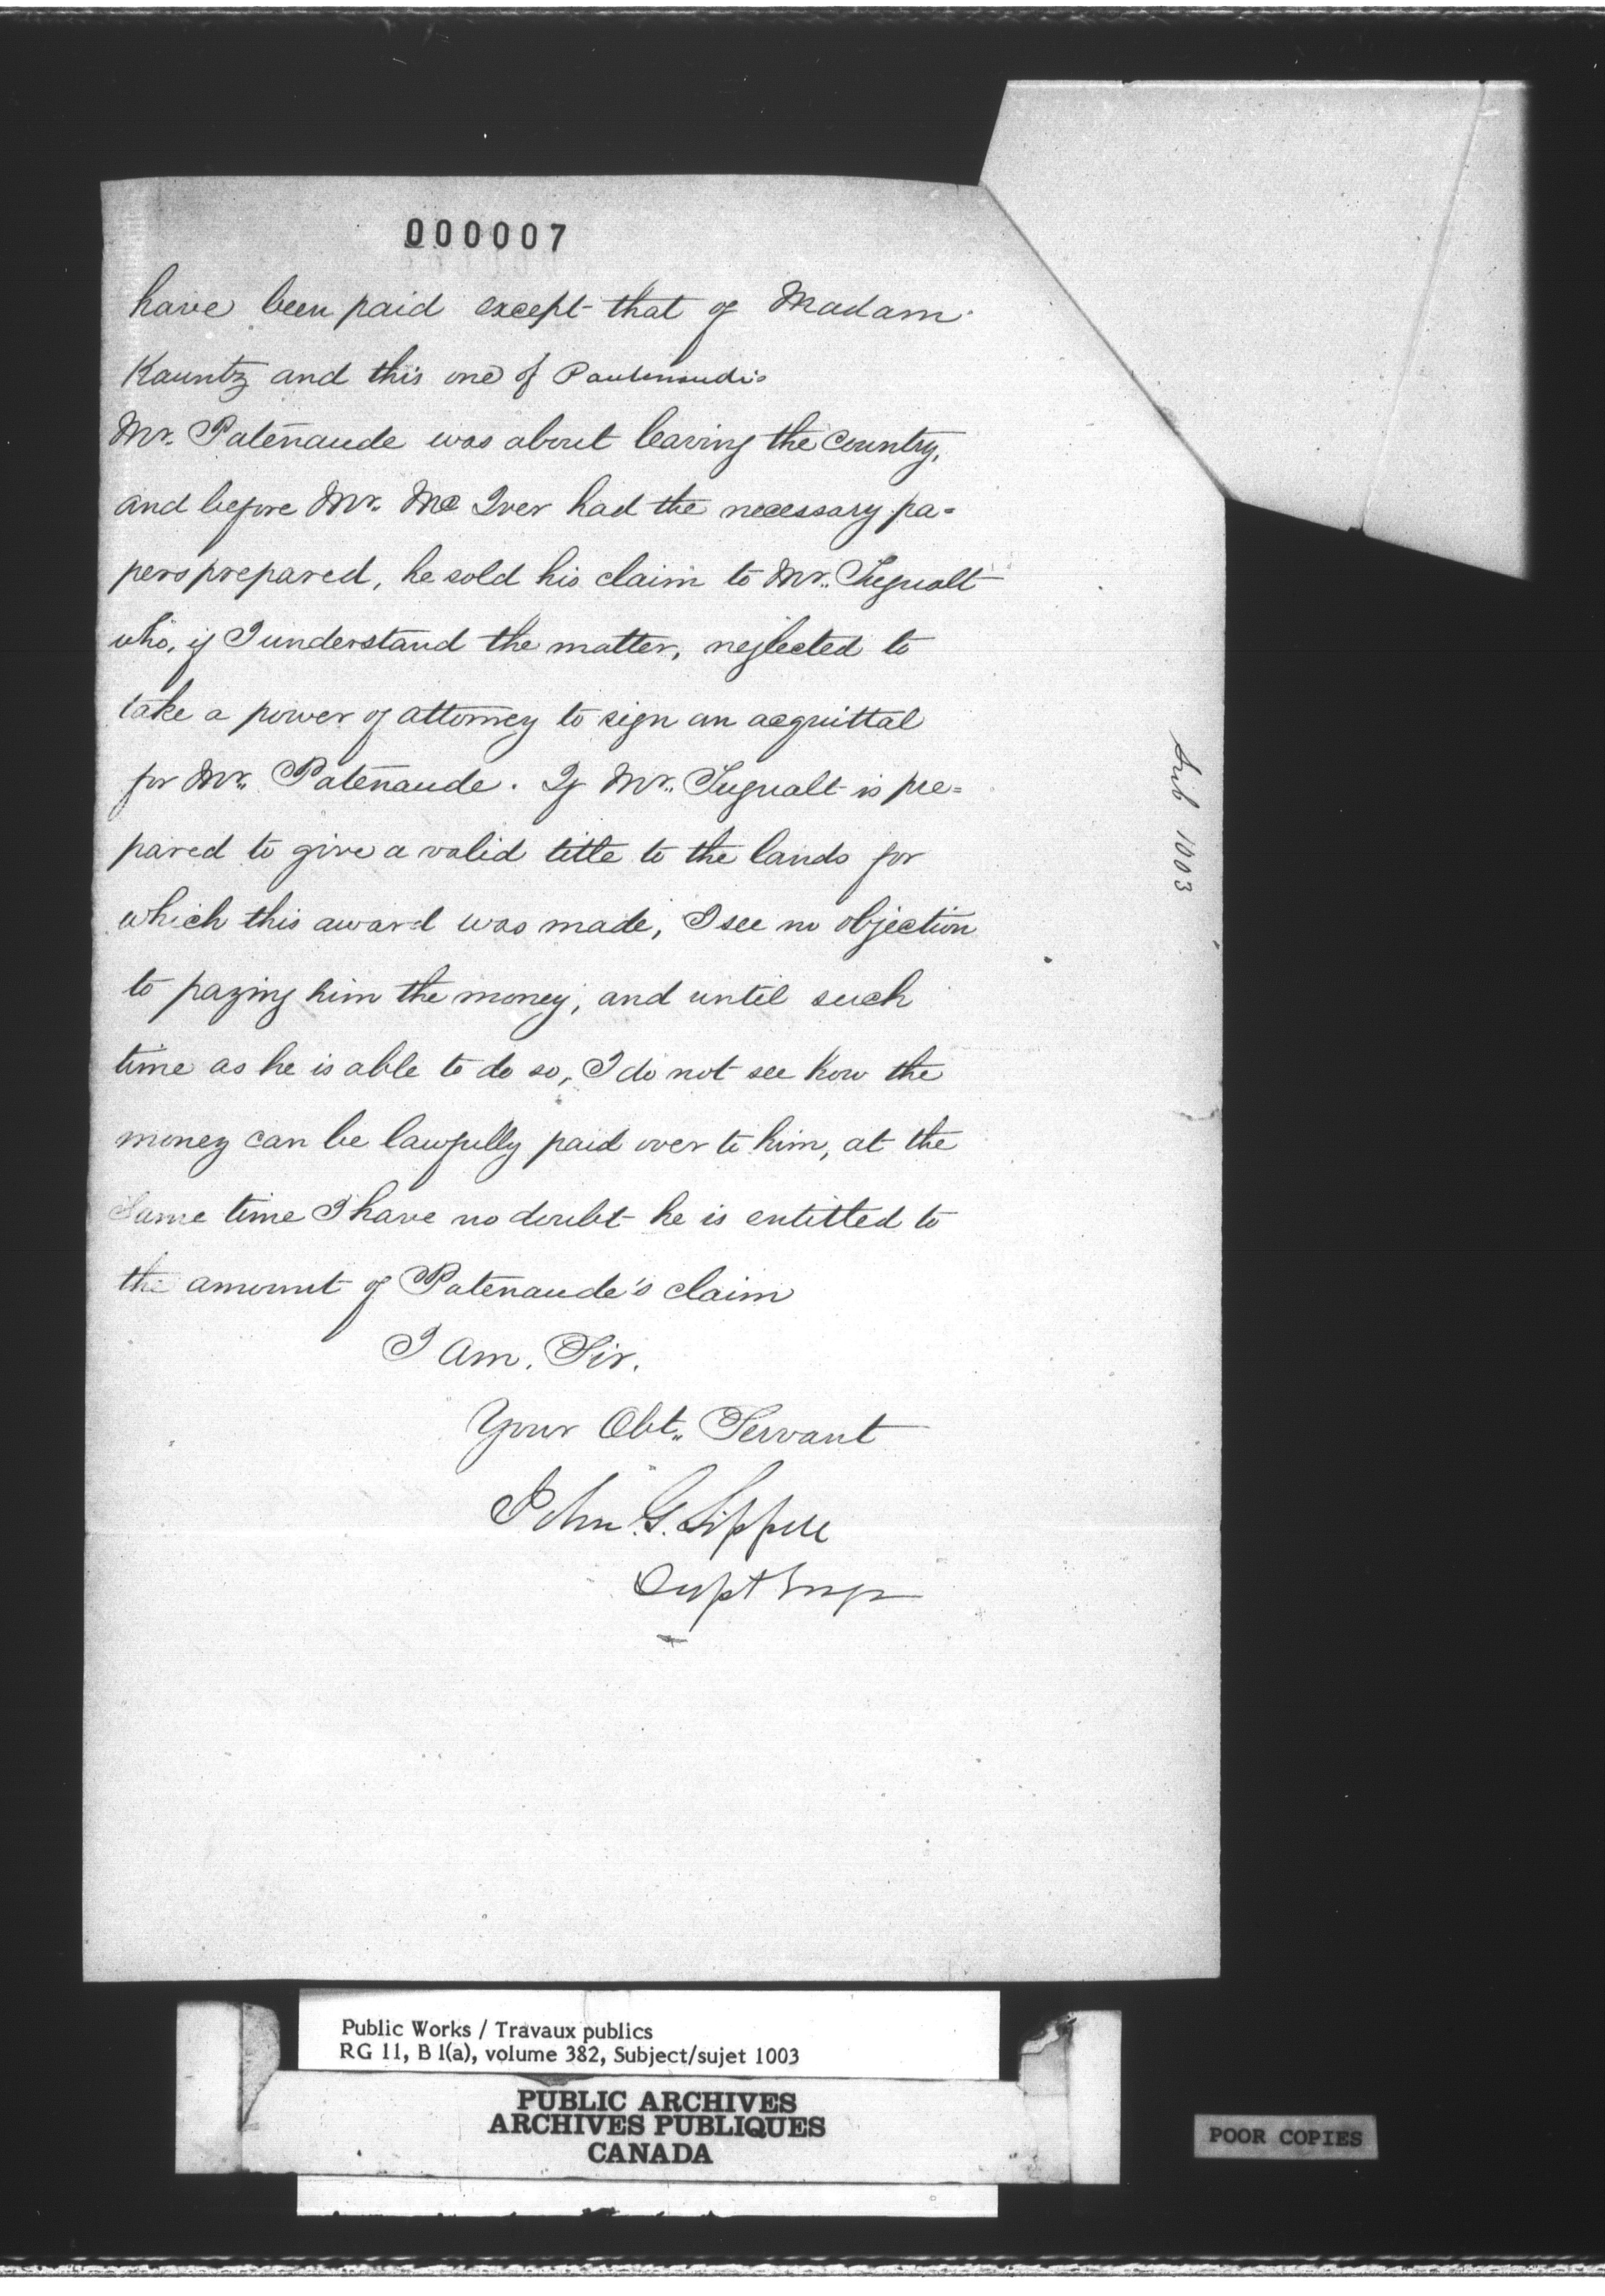 000007
have been paid except that of Madam
Kauntz and this one of
Mr. Patenaude was about leaving the Country,
and before Mr. Mc Iver had the necessary pa=
pers prepared, he sold his claim to Mr. Tugualt
who, if I understand the matter, neglected to
take a power of attorney to sign an acquittal
for Mr. Patenaude. If Mr. Tugualt is pre=
pared to give a valid title to the lands for
which this award was made, I see no objection
to paying him the money, and until such
time as he is able to do so, I do not see how the
money can be lawfully paid over to him, at the
same time I have no doubt he is entitled to
the amount of Patenaude's claim
I am, Sir.
Your Obt. Servant
John G. Sippell
Supt Engr
Sub 1003
Public Works / Travaux publics
RG 11, B 1(a), volume 382, Subject/sujet 1003
PUBLIC ARCHIVES
ARCHIVES PUBLIQUES
CANADA
POOR COPIES